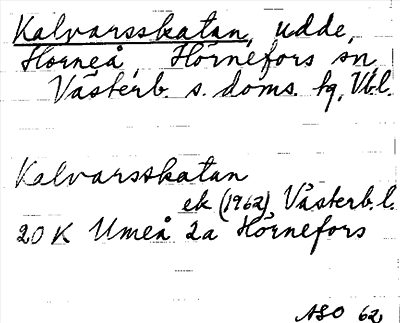 Kalvarsskatan, udde,
Horneå, Hörnefors sn,
Västerb. s. doms. tg, Vbl.
Kalvarsskatan
ek (1962) Västerb. l.
20 K Umeå 2a Hörnefors
ASO 62